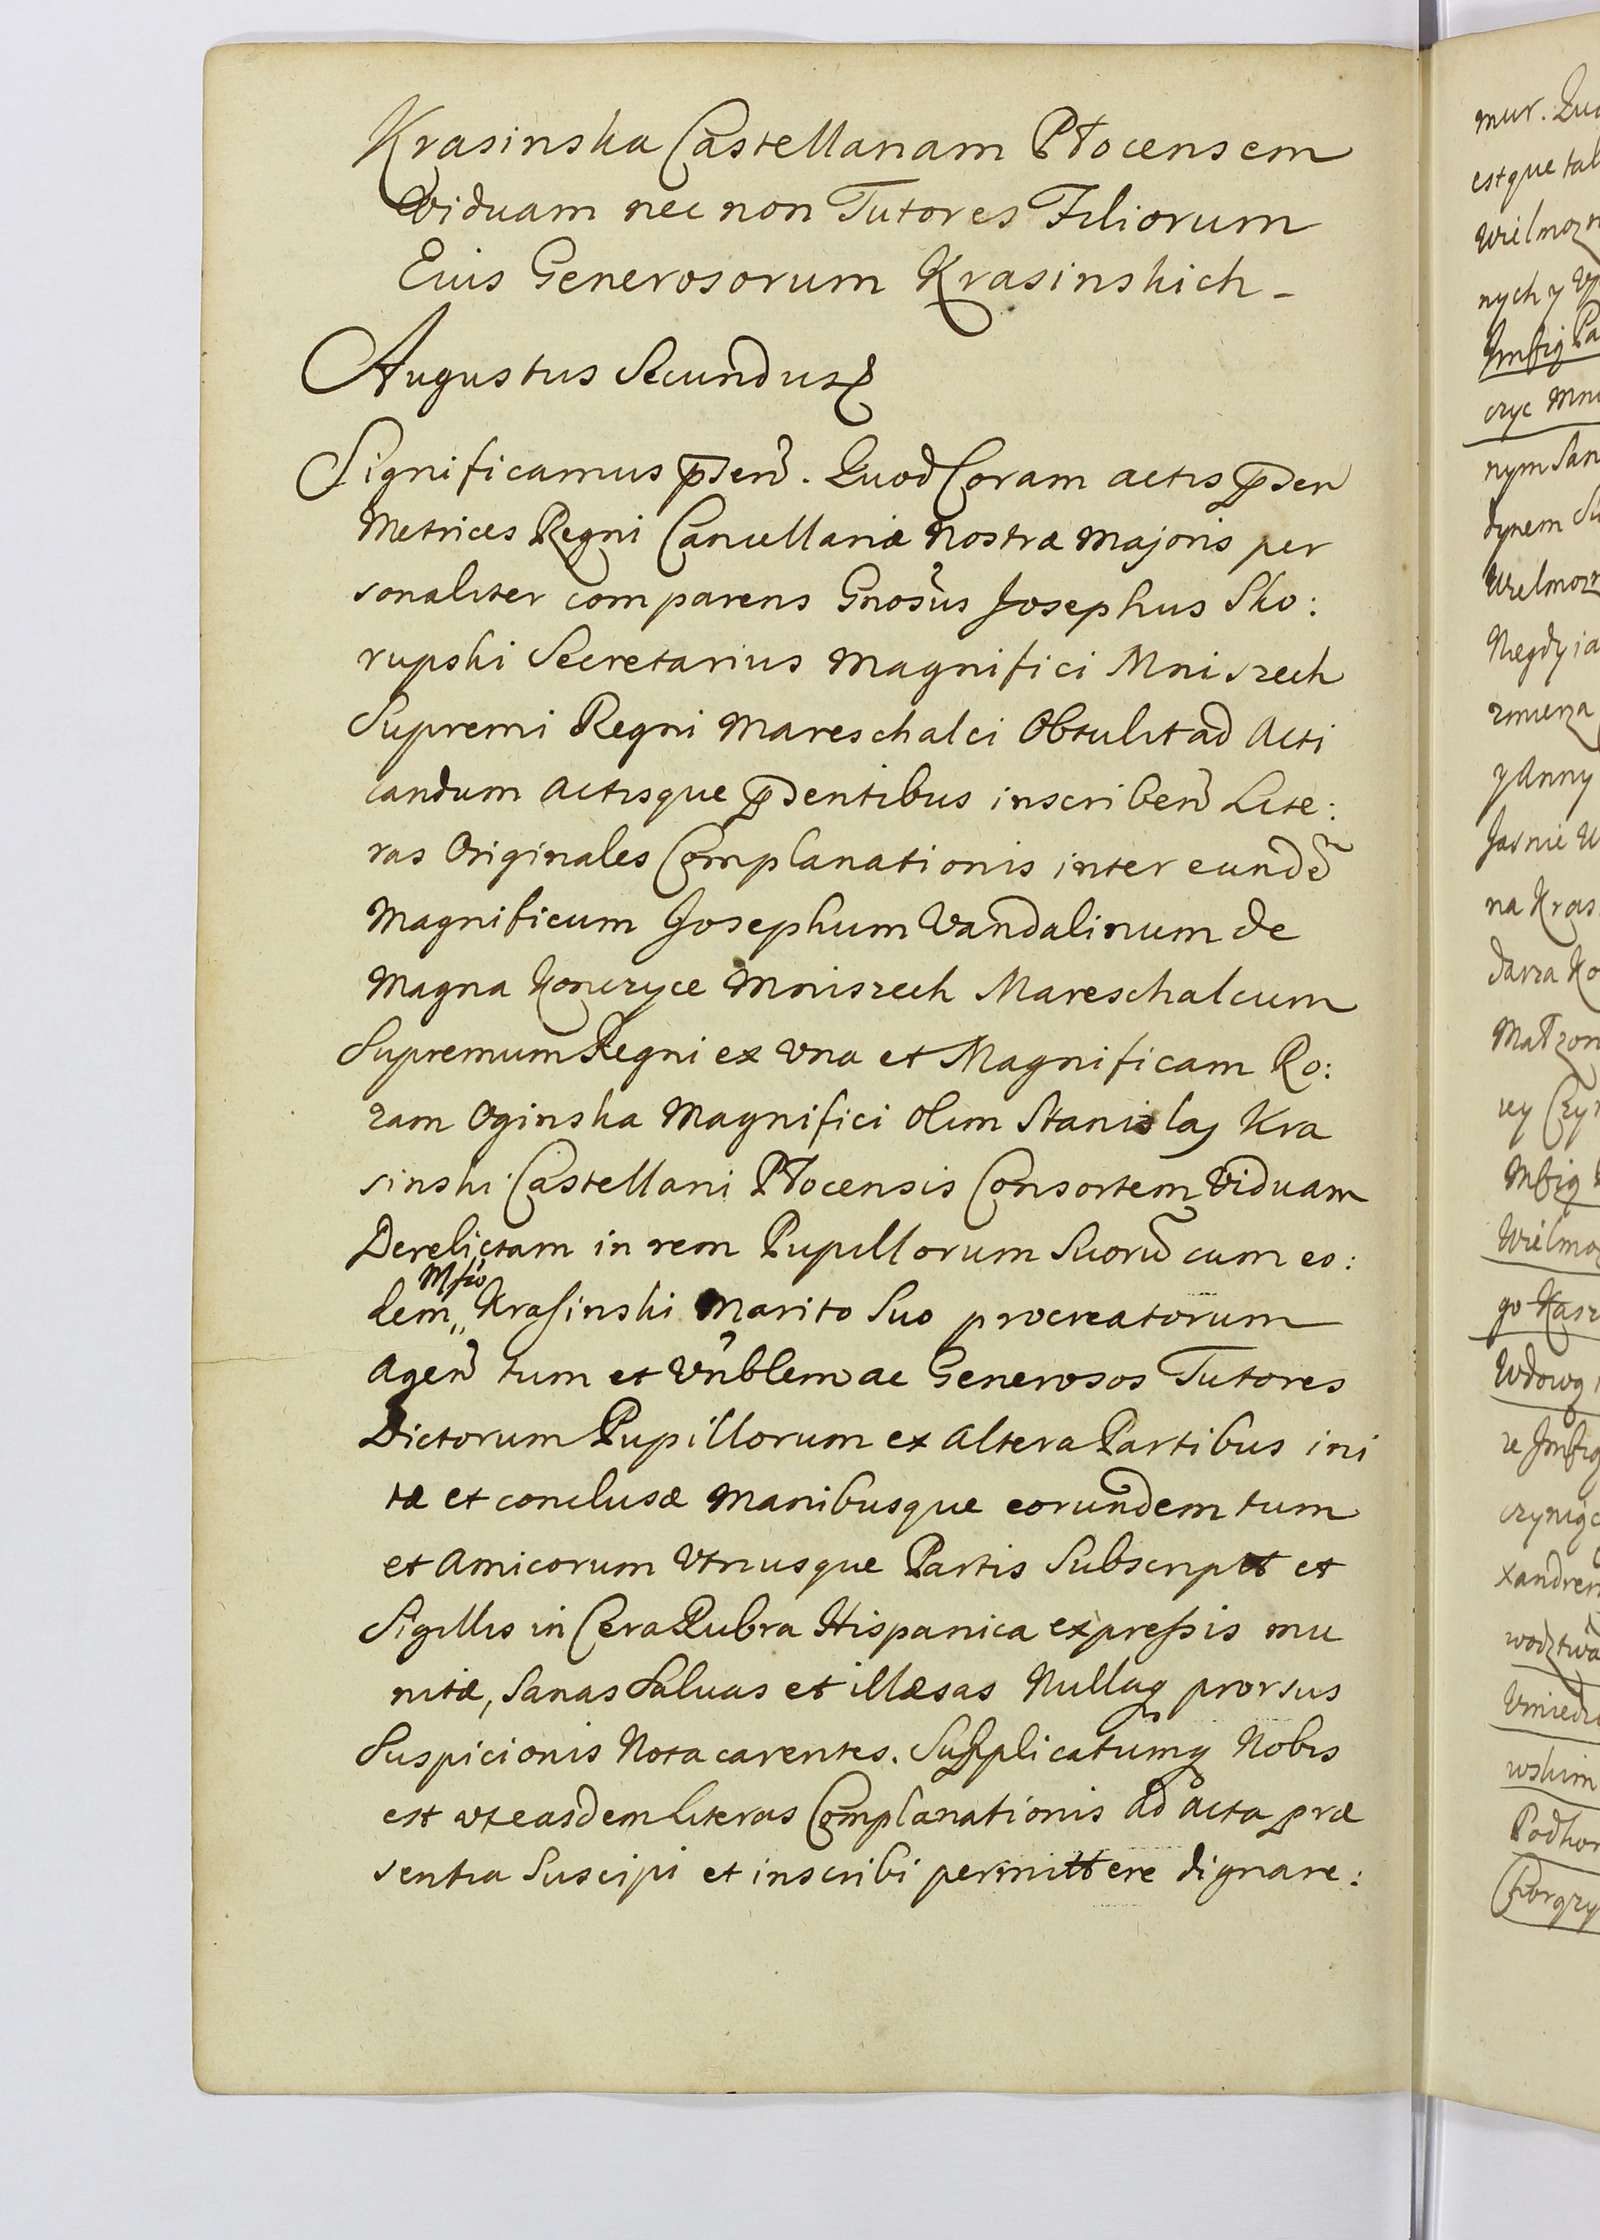 Krasinska Castellanam Płocensem
Viduam nec non Tutores Filiorum
Eius Generosorum Krasinskich -
Augustus Secundus
Significamus p̄sen̄. Quod Coram actis p̄sen
Metrices Regni Cancellariæ Nostræ Majoris per
sonaliter comparens Gnosus Josephus Sko:
rupski Secretarius Magnifici Mniszech
Supremi Regni Mareschalci Obtulit ad Acti
candum Actisque p̄sentibus inscriben̄ Lite:
ras Originales Complanationis inter eundē
Magnificum Josephum Vandalinum de
Magna Konczyce Mniszech Mareschalcum
Supremum Regni ex Vna et Magnificam Ro:
zam Oginska Magnifici Olim Stanislaj Kra
sinski Castellani Płocensis Consortem Viduam
Derelictam in rem Pupillorum Suorū cum eo:
Mfco
dem,, Krasinski Marito Suo procreatorum
Agen̄ tum et Vn̄blem ac Generosos Tutores
Dictorum Pupillorum ex Altera Partibus ini
tæ et conclusæ Manibusque eorundem tum
et Amicorum Vtriusque Partis Subscript et
Sigillis in Cera Rubra Hispanica expressis mu
nitæ, Sanas Saluas et illæsas Nullaq prorsus
Suspicionis Nota carentes. Supplicatumq Nobis
est vt easdem Literas Complanationis Ad Acta præ
sentia Suscipi et inscribi permittere dignare:
mur. Quo
estque tal
Wielmozn
nych y
cryc Mni
nym
dynem
Wielmoz
Niegdy ia
zmierza
y Anny
Jasnie W
na Kras
darza Ko
Małzon
Wielmo
Wdowq
czyniąc
xandrem
wodztwa
Vmiedz
wskim
Podkom